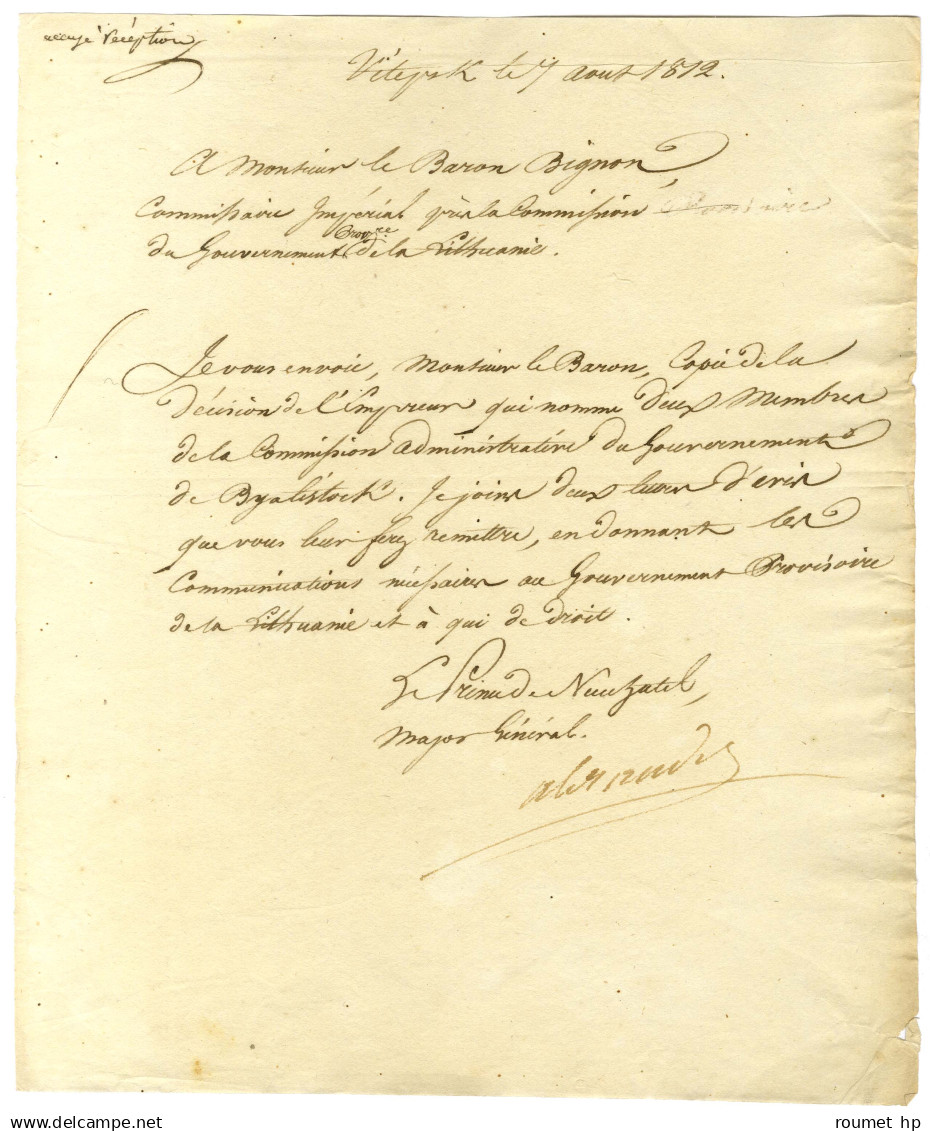 accusé réception
Vitepsk le 7 aout 1812.
A Monsieur le Baron Bignon,
Commissaire Impérial près la Commission
Provre
du Gouvernement de la Lithuanie.
Je vous envoie, Monsieur le Baron, Copie de la
décision de l'Empereur qui nomme deux Membres
de la Commission administrative du Gouvernement
de Byalistock. Je joins deux lettres d'avis
que vous leur ferez remettre, en donnant les
Communications nécessaires au Gouvernement Provisoire
de la Lithuanie et à qui de droit.
Le Prince de Neuchatel,
Major Général.
Alexandre
www.delcampe.net
roumet hp